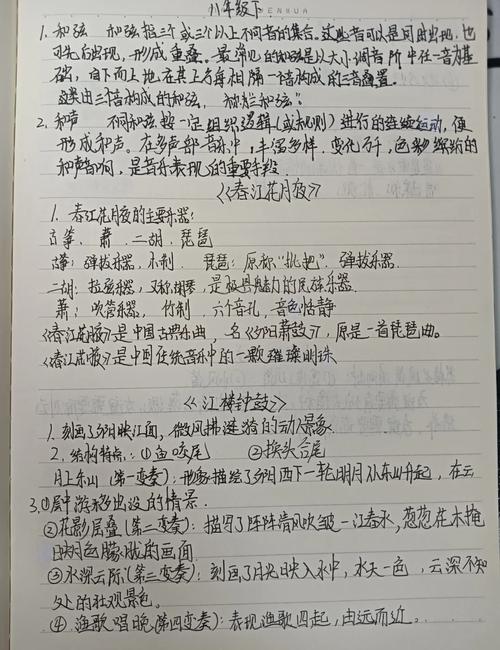 八年级下.
1. 和弦 和弦指三个或三个以上不同音的集合。这些音可以是同时出现,也
可先后出现,形成重叠。最常见的和弦是以大小调音阶中任一音为基
础,自下而上地在其上方每相隔一个音构成的三音叠置。
这类由三个音构成的和弦,称
2. 和声 不同和弦按一定组织逻辑(或规则)进行的连续运动,便
形成和声。在多声部音乐中,丰富多样、变化万千,色彩缤纷的
和声音响,是音乐表现的重要手段.
《春江花月夜》
1. 春江花月夜的主要乐器:
古筝、萧、二胡、琵琶
古筝:弹拨乐器,木制. 琵琶:原称"批把". 弹拔乐器.
二胡:拉弦乐器,又称 是极具魅力的民族乐器.
萧:吹管乐器,竹制. 六个音孔,音色恬静
《春江花月夜》是中国古典乐曲,名《夕阳萧鼓》,原是一首琵琶曲。
《春江花月夜》是中国传统音乐中的一颗璀璨明珠
《江楼钟鼓》
1. 刻画了夕阳映江面,微风拂涟漪的动人景象.
2. 结构特点:①鱼咬尾 ②换头合尾
月上东山(第一变奏): 描绘了夕阳西下一轮明月从东山升起,在云
3.①层中游移出没的情景.
②花影层叠(第二变奏):描写了阵阵清风吹皱一江春水,葱葱花木掩
映月色朦胧的画面
③水深云际(第三变奏):刻画了月光映入水中,水天一色,云深不知
处的壮观景色。
④ 渔歌唱晚(第四变奏):表现渔歌四起,由远而近。